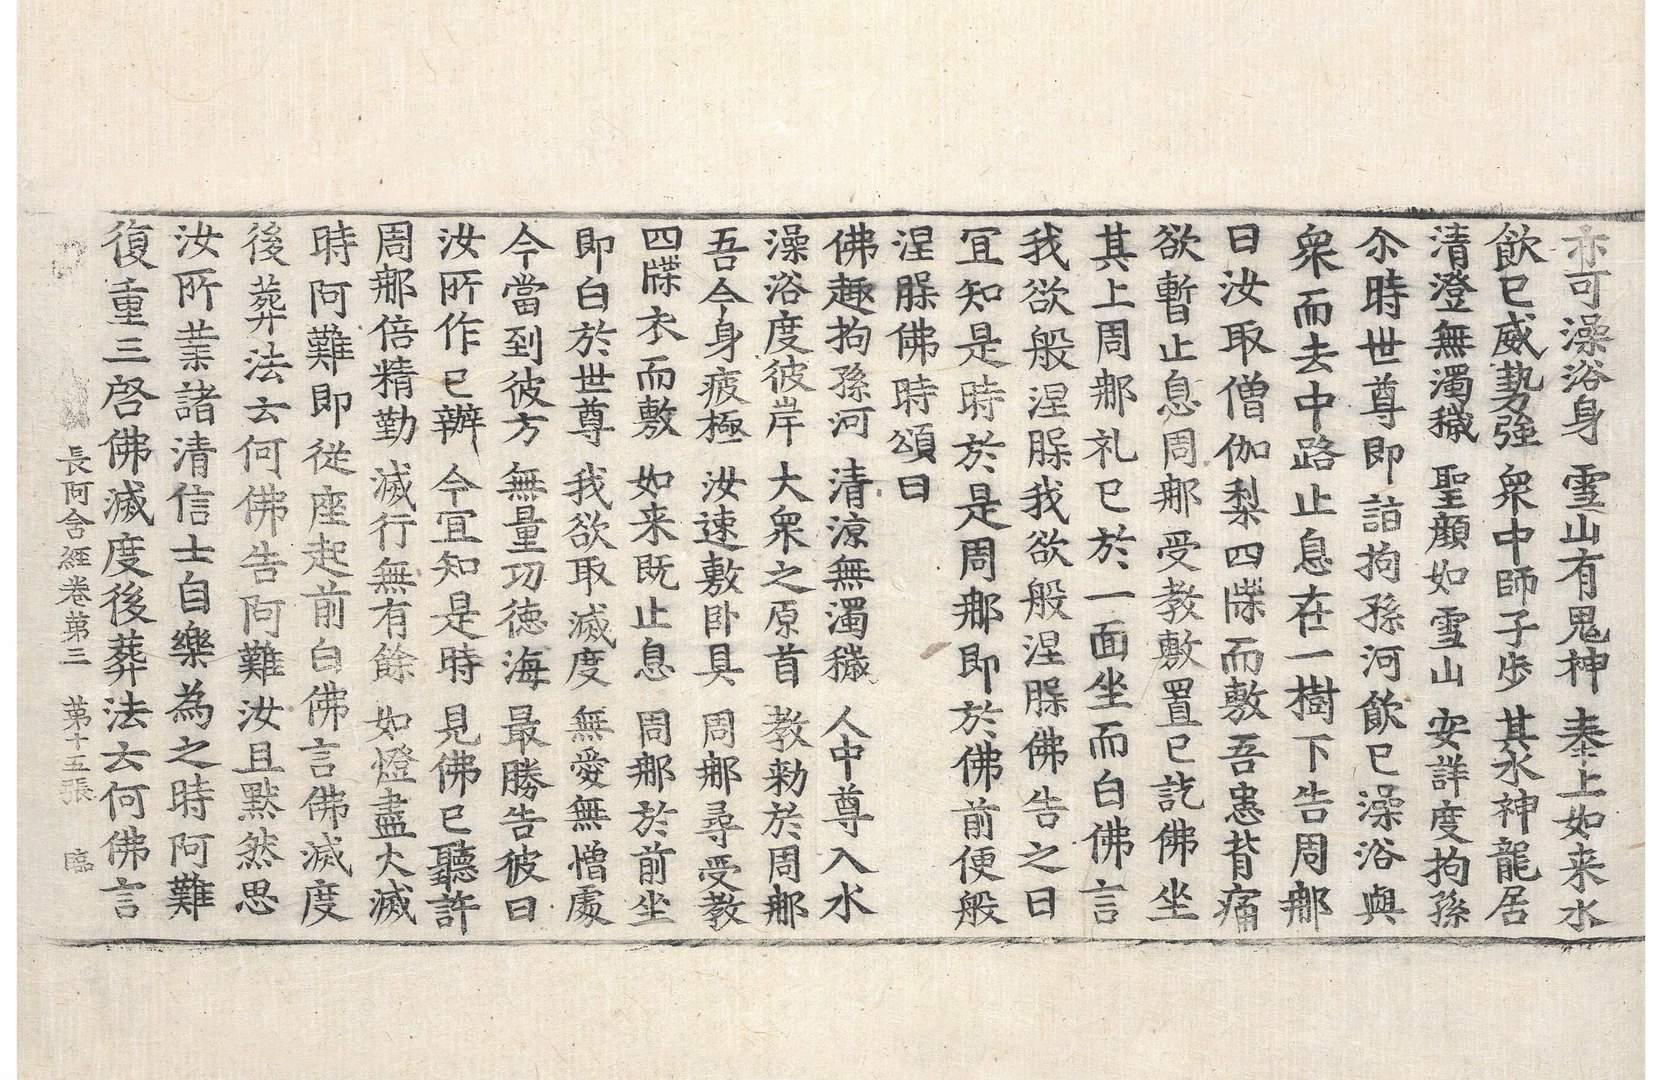 亦可澡浴身 雪山有鬼神 奉上如来水
飲已威勢強 衆中師子步 其水神龍居
清澄無濁穢 聖顔如雪山 安詳度拘孫
尒時世尊即詣拘孫河飲已澡浴與
衆而去中路止息在一樹下告周那
曰汝取僧伽梨四牒而敷吾患背痛
欲暫止息周那受教敷置已訖佛坐
其上周那礼已於一面坐而白佛言
我欲般涅槃我欲般涅槃佛告之曰
宜知是時於是周那即於佛前便般
涅槃佛時頌曰
佛趣拘孫河 清涼無濁穢 人中尊入水
澡浴度彼岸 大衆之原首 教勑於周那
吾今身疲極 汝速敷卧具 周那尋受教
四牒衣而敷 如来既止息 周那於前坐
即白於世尊 我欲取滅度 無愛無憎處
今當到彼方 無量功徳海 最勝告彼曰
汝所作已辦 今宜知是時 見佛已聽許
周那倍精勤 滅行無有餘 如燈盡火滅
時阿難即從座起前白佛言佛滅度
後葬法云何佛告阿難汝且默然思
汝所業諸清信士自樂為之時阿難
復重三啓佛滅度後葬法云何佛言
長阿含經卷第三 第十五張 臨